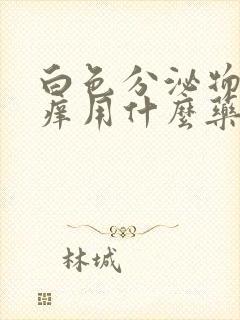 白色分泌物
痒用什麼藥
林城